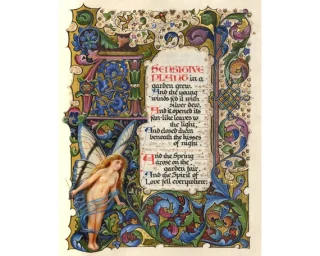 A
SENSITIVE
PLANT in a
garden grew,
And the young
winds fed it with
silver dew,
And it opened its
fan-like leaves to
the light,
And closed them
beneath the kisses
of night.
And the Spring
arose on the
garden fair,
And the Spirit of
Love fell everywhere;